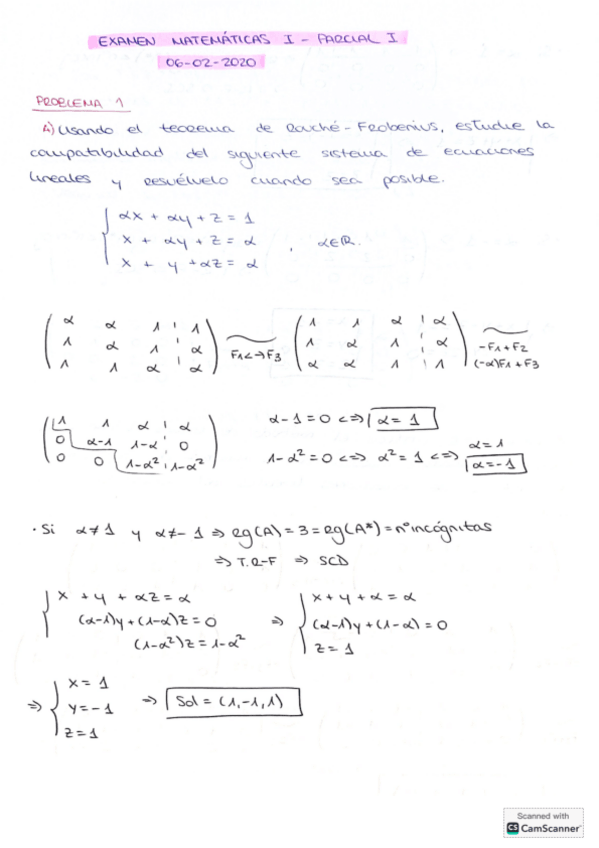 EXAMEN MATEMÁTICAS I - PARCIAL I
06-02-2020
PROBLEMA 1
4) Usando el teorema de Rouché-Frobenius, estudie la
compatibilidad del siguiente sistema de ecuaciones
lineales y resuélvelo cuando sea posible.
αx + αy + z = 1
x + αy + z = α , α∈R.
x + y + αz = α
α α 1 1 1 1 α α
1 α 1 α F1<->F3 1 α 1 α -F1+F2
1 1 α α α α 1 1 (-α)F1+F3
1 1 α α α-1=0 <=> α= 1
0 α-1 1-α 0 α=1
0 0 1-α² 1-α² 1-α²=0 <=> α²=1 <=> α=-1
· Si α≠1 y α≠-1 => rg(A)=3=rg(A*)=nºincógnitas
=> T.R-F => SCD
x + y + αz = α x + y + α = α
(α-1)y+(1-α)z=0 => (α-1)y+(1-α)=0
(1-α²)z=1-α² z=1
x=1
=> y=-1 => Sol = (1,-1,1)
z=1
Scanned with
CS CamScanner